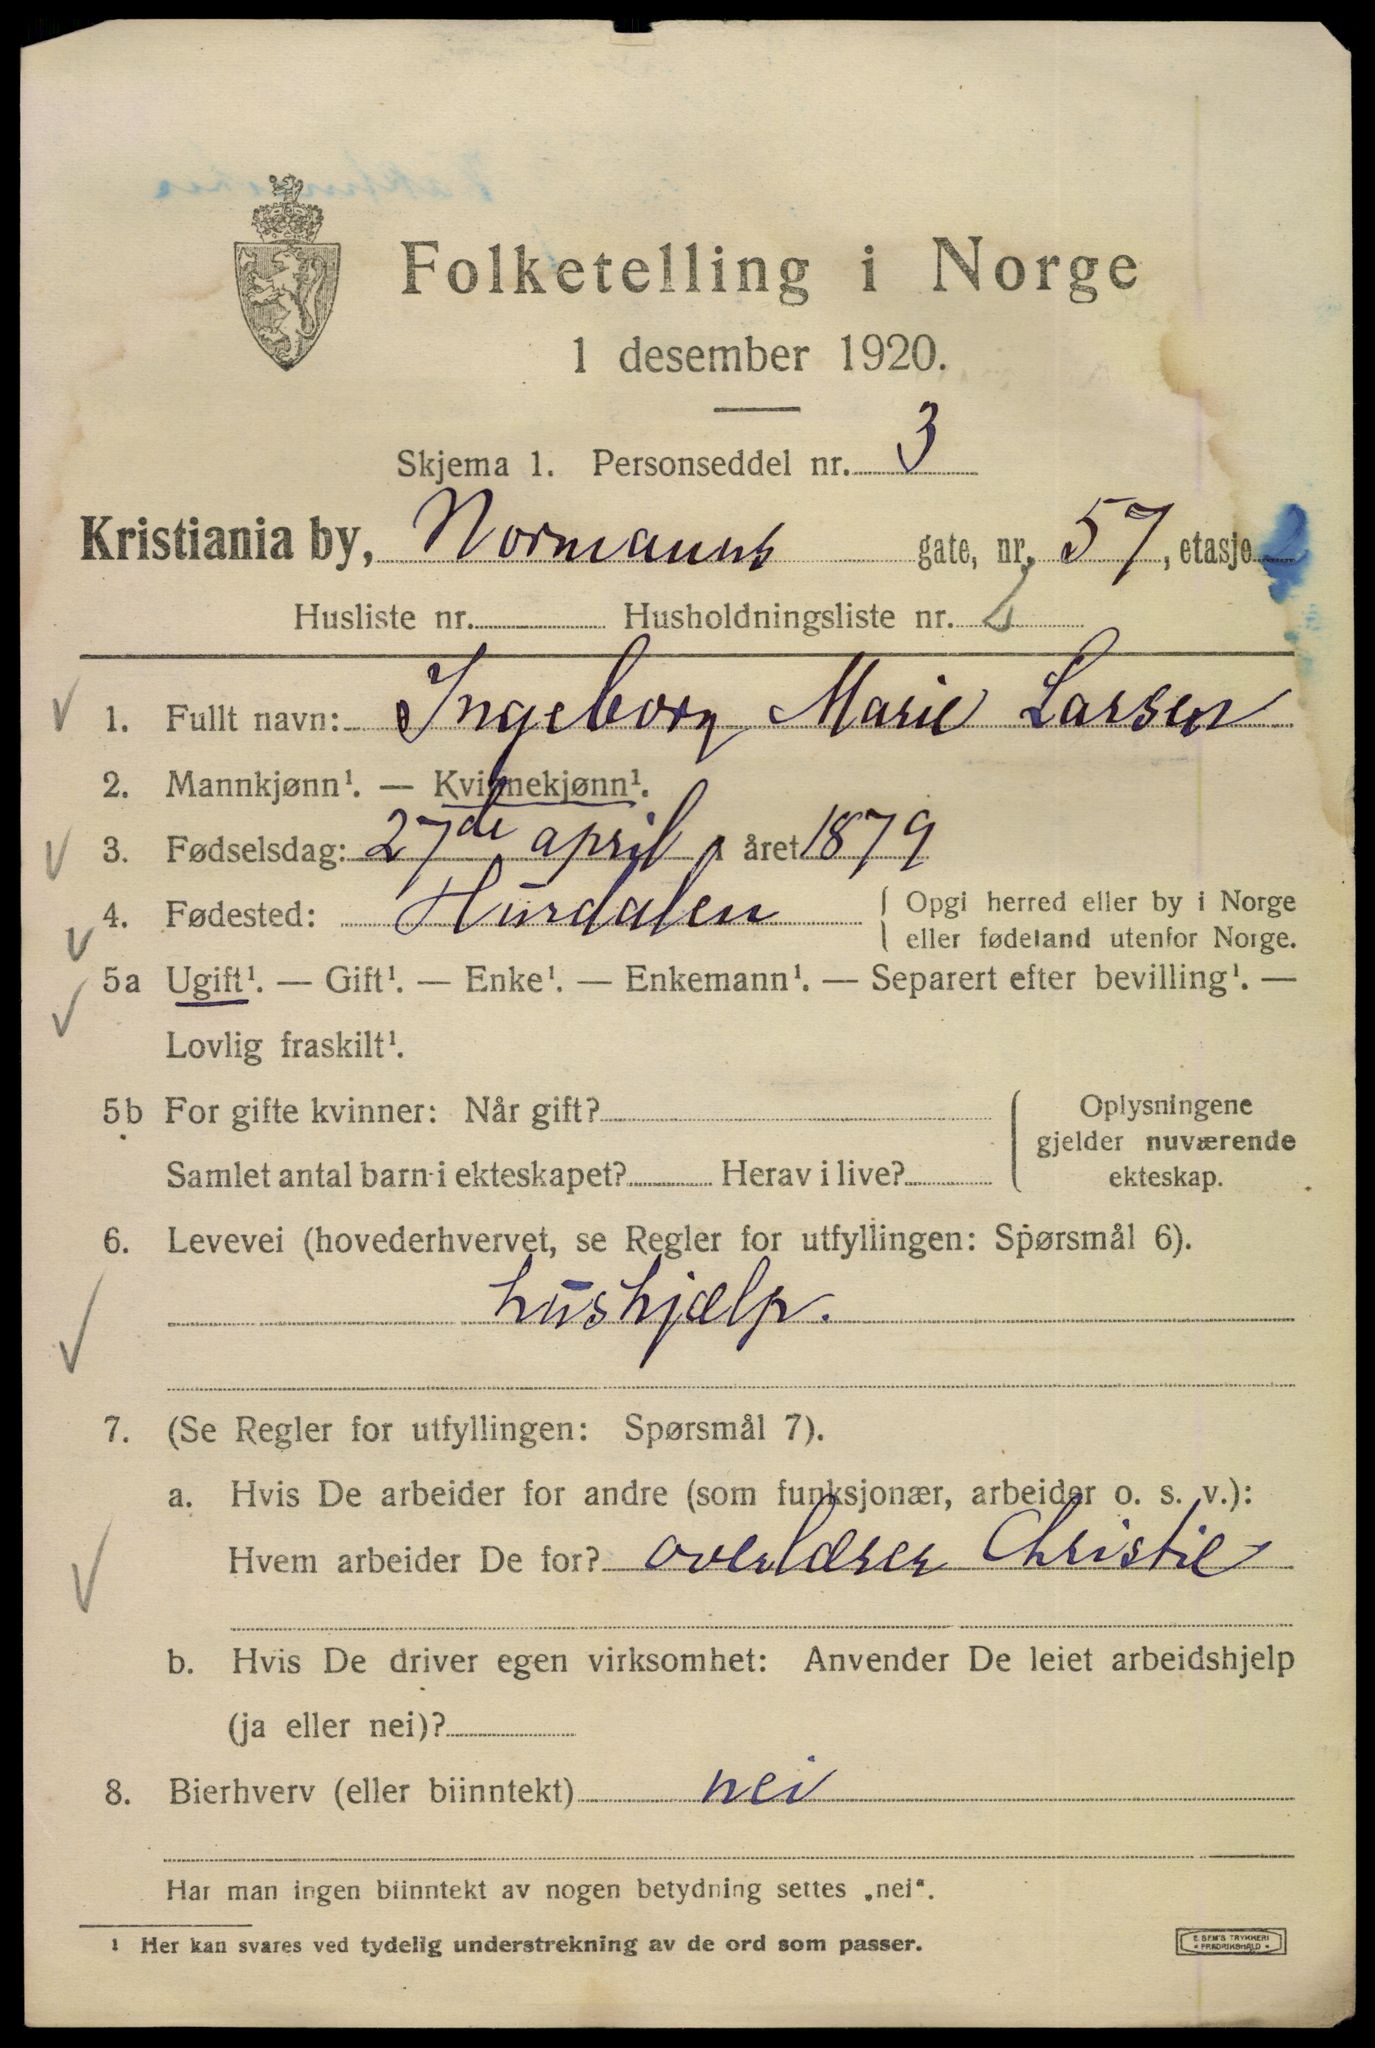 Folketelling i Norge
1 desember 1920.
Skjema 1. Personseddel nr. 3
Kristiania by, Normanns gate, nr. 57, etasje 2
Husliste nr. Husholdningsliste nr.
1. Fullt navn: Ingeborg Marie Larsen
2. Mannkjønn¹. — Kvinnekjønn¹.
3. Fødselsdag: 27de april i året 1879
4. Fødested: Hurdalen { Opgi herred eller by i Norge
eller fødeland utenfor Norge.
5a Ugift¹. — Gift¹. — Enke¹. — Enkemann¹. — Separert efter bevilling¹. —
Lovlig fraskilt¹.
5b For gifte kvinner: Når gift? { Oplysningene
gjelder nuværende
Samlet antal barn i ekteskapet? Herav i live? ekteskap.
6. Levevei (hovederhvervet, se Regler for utfyllingen: Spørsmål 6).
hushjælp.
7. (Se Regler for utfyllingen: Spørsmål 7).
a. Hvis De arbeider for andre (som funksjonær, arbeider o. s. v.):
Hvem arbeider De for? overlærer Christie
b. Hvis De driver egen virksomhet: Anvender De leiet arbeidshjelp
(ja eller nei)?
8. Bierhverv (eller biinntekt) nei
Har man ingen biinntekt av nogen betydning settes „nei“.
¹ Her kan svares ved tydelig understrekning av de ord som passer.
E SEM'S TRYKKERI
• FREDRIKSHALD •